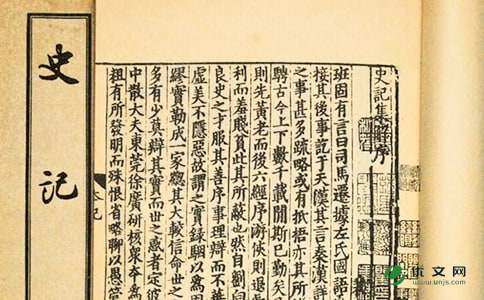 史記集解序
班固有言曰司馬遷據左氏國語
接其後事訖于天漢其言秦漢詳
之事甚多疏略或有抵梧亦其所
騁古今上下數千載間斯已勤矣
則先黃老而後六經序游俠則退
利而羞賤貧此其所蔽也然自劉向
良史之才服其善序事理辯而不
虛美不隱惡故謂之實錄駰以爲固
繆實勒成一家緫其大較信命世之
多有少莫辯其實而世之惑者定彼
中散大夫東莞徐廣研核衆本爲
粗有所發明而殊恨省略聊以愚管
史記
优文网
www.unjs.com